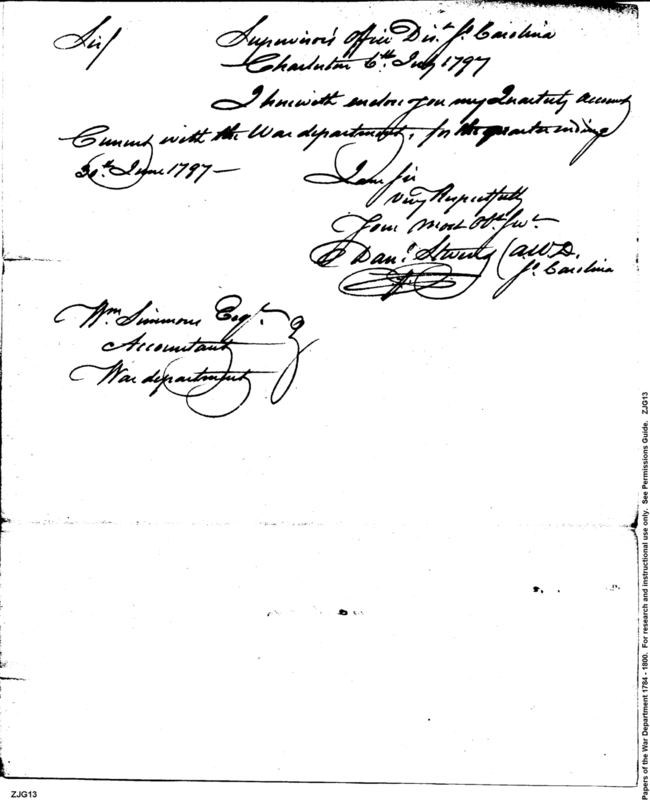 Sir/ Supervisor's Office Dist. So. Carolina
Charleston 6th July 1797
I herewith enclose you my Quarterly Account
Current with the War department, for the quarter ending
30th June 1797 —
I am Sir
Very Respectfully
Your most Obt. Servt.
Danl. Stevens
So. Carolina
Wm. Simmons Esqr.
Accountant
War department
Papers of the War Department 1784 - 1800. For research and instructional use only. See Permissions Guide. ZJG13
ZJG13